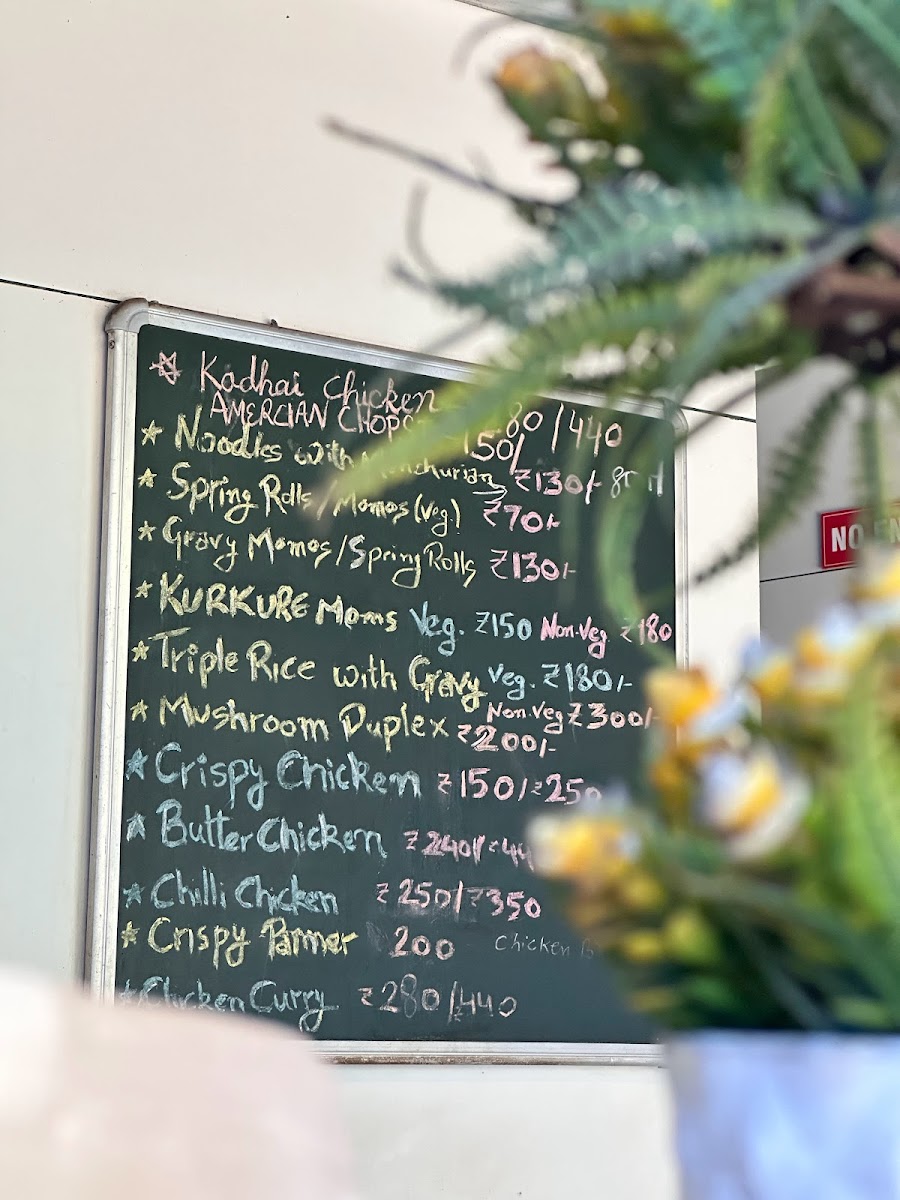 Kadhai Chicken 80/440
AMERCIAN CHOPS 150/
Noodles with Manchurian ₹130/-
Spring Rolls/Momos (Veg.) ₹70/-
Gravy Momos/Spring Rolls ₹130/-
KURKURE Moms Veg. ₹150 Non.Veg ₹180
Triple Rice with Gravy Veg. ₹180/-
Non.Veg ₹300/-
Mushroom Duplex ₹200/-
Crispy Chicken ₹150/₹250
Butter Chicken ₹240/
Chilli Chicken ₹250/₹350
Crispy Panner 200 Chicken
Chicken Curry ₹280/440
NO